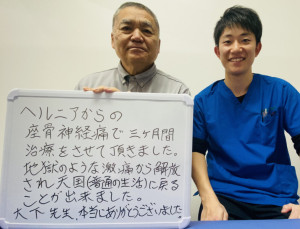 ヘルニアからの
座骨神経痛で 三ヶ月間
治療をさせて頂きました。
地獄のような激痛から解放
され天国(普通の生活)に戻る
ことが出来ました。
大下先生、本当にありがとうございました